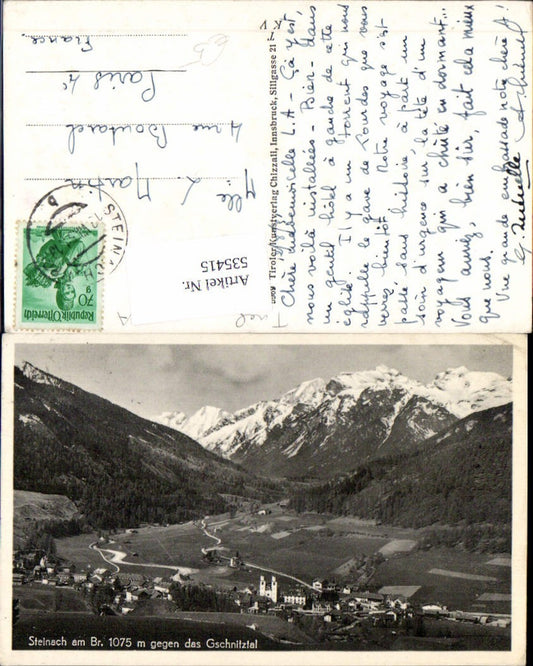 France.
Paris 4e
4 rue Boutarel
Mlle L. Martin
STEINACH
70
g
Republik Österreich
535415
Artikel Nr.
Tiroler Kunstverlag Chizzali, Innsbruck, Sillgasse 21
Chère Mademoiselle L.A. - Ça y est,
nous voilà installées - Bien - dans
un gentil hôtel à gauche de cette
église. Il y a un torrent qui nous
rappelle le gave de Lourdes que vous
verrez bientôt. Notre voyage s'est
passé sans histoire, à part un
soin d'urgence sur la tête d'un
voyageur qui a chuté en dormant...
Vous auriez, bien sûr, fait cela mieux
que nous.
Une grande embrassade notre chère A!
Steinach am Br. 1075 m gegen das Gschnitztal